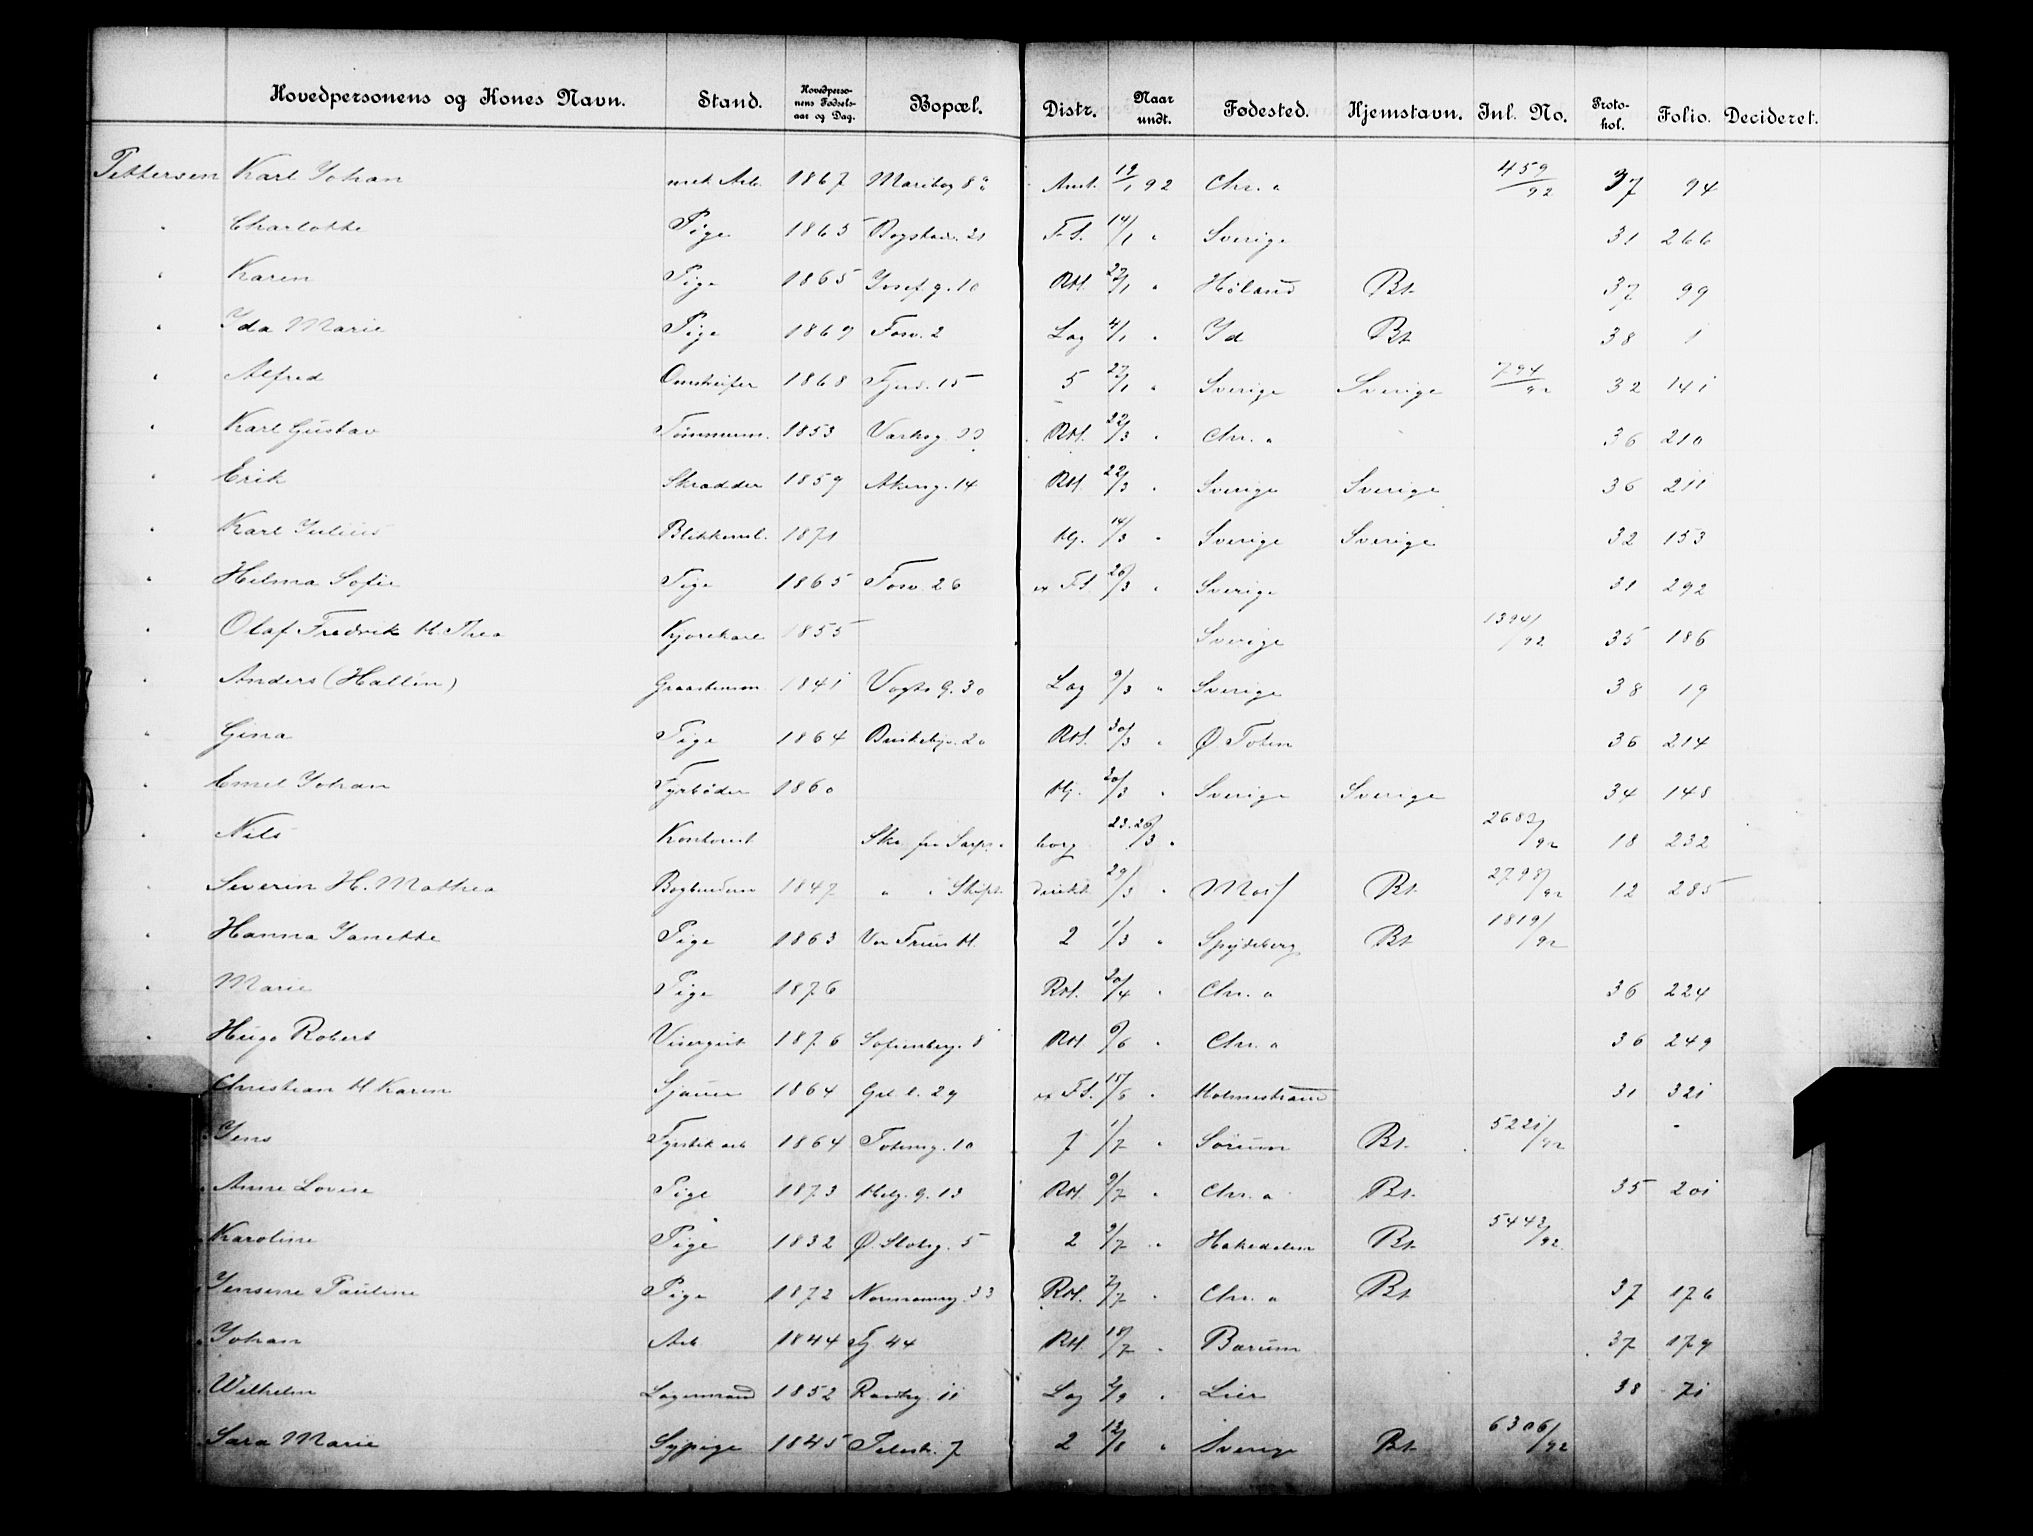 Hovedpersonens og Kones Navn. Stand. Hovedpersonens Fødselsaar og Dag. Bopæl. Distr. Naar undt. Fødested. Hjemstavn. Inl. No. Protokol. Folio. Decideret.
Pettersen Karl Johan mek Arb. 1867 Amt. 19/1 92 Chr. a 459/92 37 94
" Charlotte Pige 1865 Bogstadv. 21 F.S. 14/1 " Sverige 31 266
" Karen Pige 1865 Josef g. 10 RM. 22/1 " Høland Bt. 37 99
" Ida Marie Pige 1869 Fosv. 2 Lag 4/1 " Id Bt 38 1
" Alfred 1868 Fjerd. 15 5 27/1 " Sverige Sverige 794/92 32 141
" Karl Gustav Tømmerm. 1853 RM. 22/3 " Chr. a 36 210
" Erik Skrædder 1859 Akersg. 14 RM. 22/3 " Sverige Sverige 36 211
" Karl Julius Blikkensl. 1871 Hj. 14/3 " Sverige Sverige 32 153
" Hilma Sofie Pige 1865 Fosv. 26 F.S. 26/3 " Sverige 31 292
" Olaf Fredrik H. Thea Kjørekarl 1855 Sverige 1394/92 35 186
" Anders (Hallén) 1841 Vogts g. 30 Lag 9/3 " Sverige 38 19
" Gina Pige 1864 20 RM. 30/3 " Ø Toten 36 214
" Emil Johan Fyrbøder 1860 Hj. 20/3 " Sverige Sverige 34 148
" Nils Kontorist Ska fra Sarpsborg 23.26/3 " 2683/92 18 232
" Severin H. Mathea 1847 " " 29/3 " Moss Bt. 2798/92 12 285
" Hanna Janette Pige 1863 Vor Frues H. 2 1/3 " Spydeberg Bt 1819/92
" Marie Pige 1876 RM. 20/4 " Chr. a 36 224
" Hugo Robert Visergut 1876 Sofienberg. 8 RM 9/6 " Chr. a 36 249
" Christian H Karen Sjauer 1864 Grl. l. 29 F.S. 15/6 " Holmestrand 31 321
" Jens Fyrstik arb 1864 Totensg. 10 7 1/7 " Sørum Bt. 5221/92 "
" Anne Lovise Pige 1873 Helg. g. 13 RM. 9/7 " Chr. a Bt. 35 201
" Karoline Pige 1832 Ø. Slotsg. 5 2 9/7 " Hakedalen Bt. 5443/92
" Jensine Pauline Pige 1872 Normannsg. 33 RM. 7/7 " Chr. a Bt 37 176
" Johan Arb 1844 Fj 44 RM 18/7 " Bærum 37 179
" Wilhelm Lagermand 1852 11 Lag 2/9 " Lier 38 71
" Sara Marie Sypige 1845 7 2 12/8 " Sverige Bt 6306/92